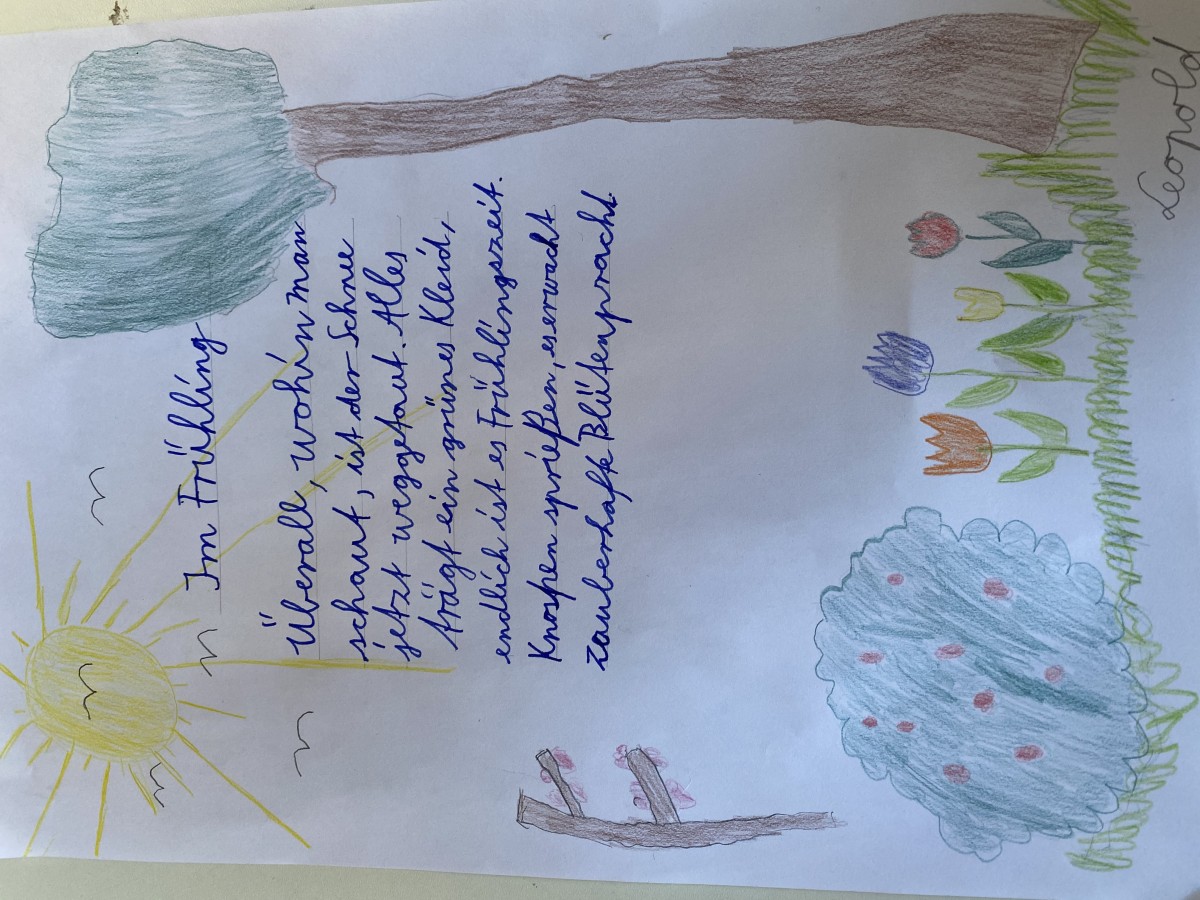 Im Frühling
Überall, wohin man
schaut, ist der Schnee
jetzt weggetaut. Alles
trägt ein grünes Kleid,
endlich ist es Frühlingszeit.
Knospen sprießen, es erwacht
zauberhafte Blütenpracht.
Leopold